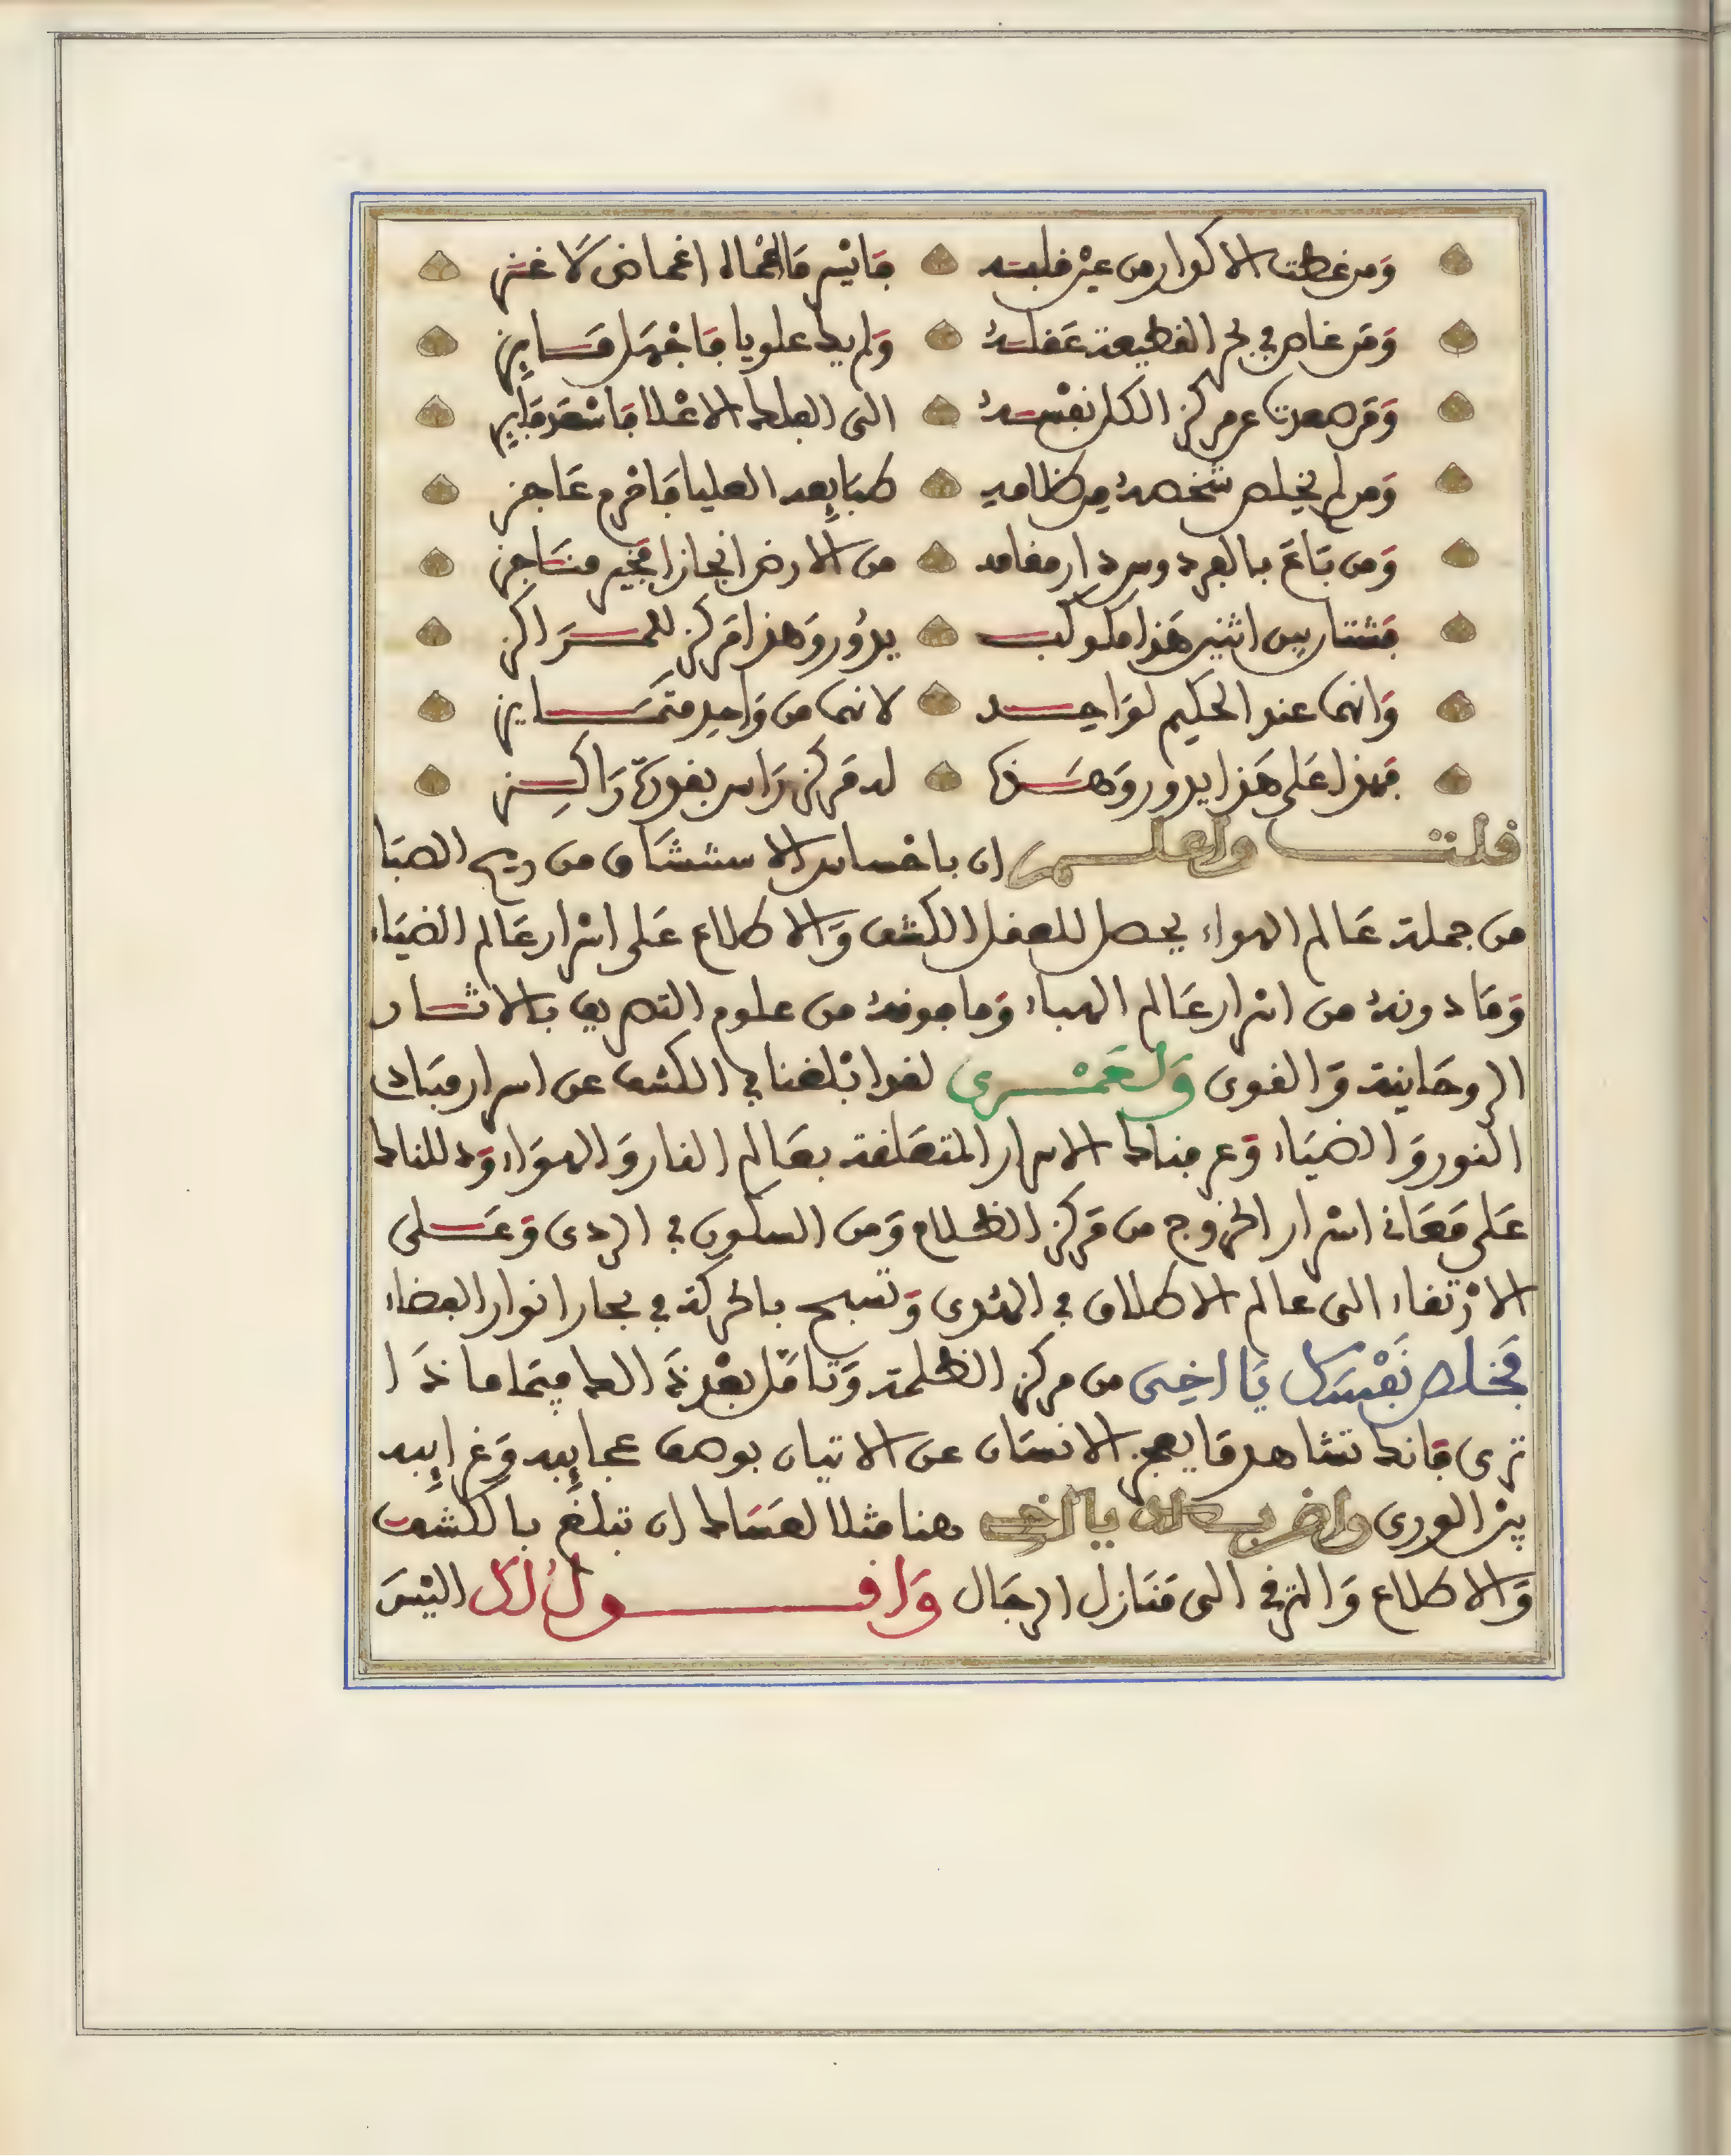 ومن غطت الاكوار من عين قلبه فايسر ما القاه اغماض لاغز
ومن غاص في بحر الطبيعة عقله ولم يك علويا فاجهل مايز
ومن صعدت عن مركز الكل نفسه الى الفلك الاعلا فاسعد فايز
ومن لم يخلص شخصه من ظلامه طبايعه العليا فافرم عاجز
ومن باع بالفردوس دار مقامه من الارض انجازا فخير مناجز
فشتان بين اثنين هذا مكوكب يدور وهذا مركز للمراكز
وانهما عند الحكيم لواحد لانهما من واحد متمايز
فهذا على هذا يدور وهذا له مركز راس بقوة راكز
قلت واعلم ان باخماس الاستنشاق من ريح الصبا
من جملة عالم الهواء يحصل للعقل الكشف والاطلاع على اسرار عالم الضياء
وما دونه من اسرار عالم الهباء وما فوقه من علوم التصريف بالاثار
الروحانية والقوى ولعمري لقد ابلغنا في الكشف عن اسرار مباد
النور والضياء وعرفناك الاسرار المتعلقة بعالم النار والهواء ودللناك
على معاني اسرار الخروج من مركز الظلام ومن السكون في الردى وعلى
الارتقاء الى عالم الاطلاق في الهدى وتسبح بالحركة في بحار انوار الفضاء
فخلص نفسك يا اخي من مركز الظلمة وتامل بعد ذالك فيما ماذا
ترى فانك تشاهد ما يعجز الانسان عن الاتيان بوصف عجايبه وغرايبه
بين الورى واضرب لك يا اخي هنا مثلا لعساك ان تبلغ بالكشف
والاطلاع والترقي الى منازل الرجال واقول لك اليس